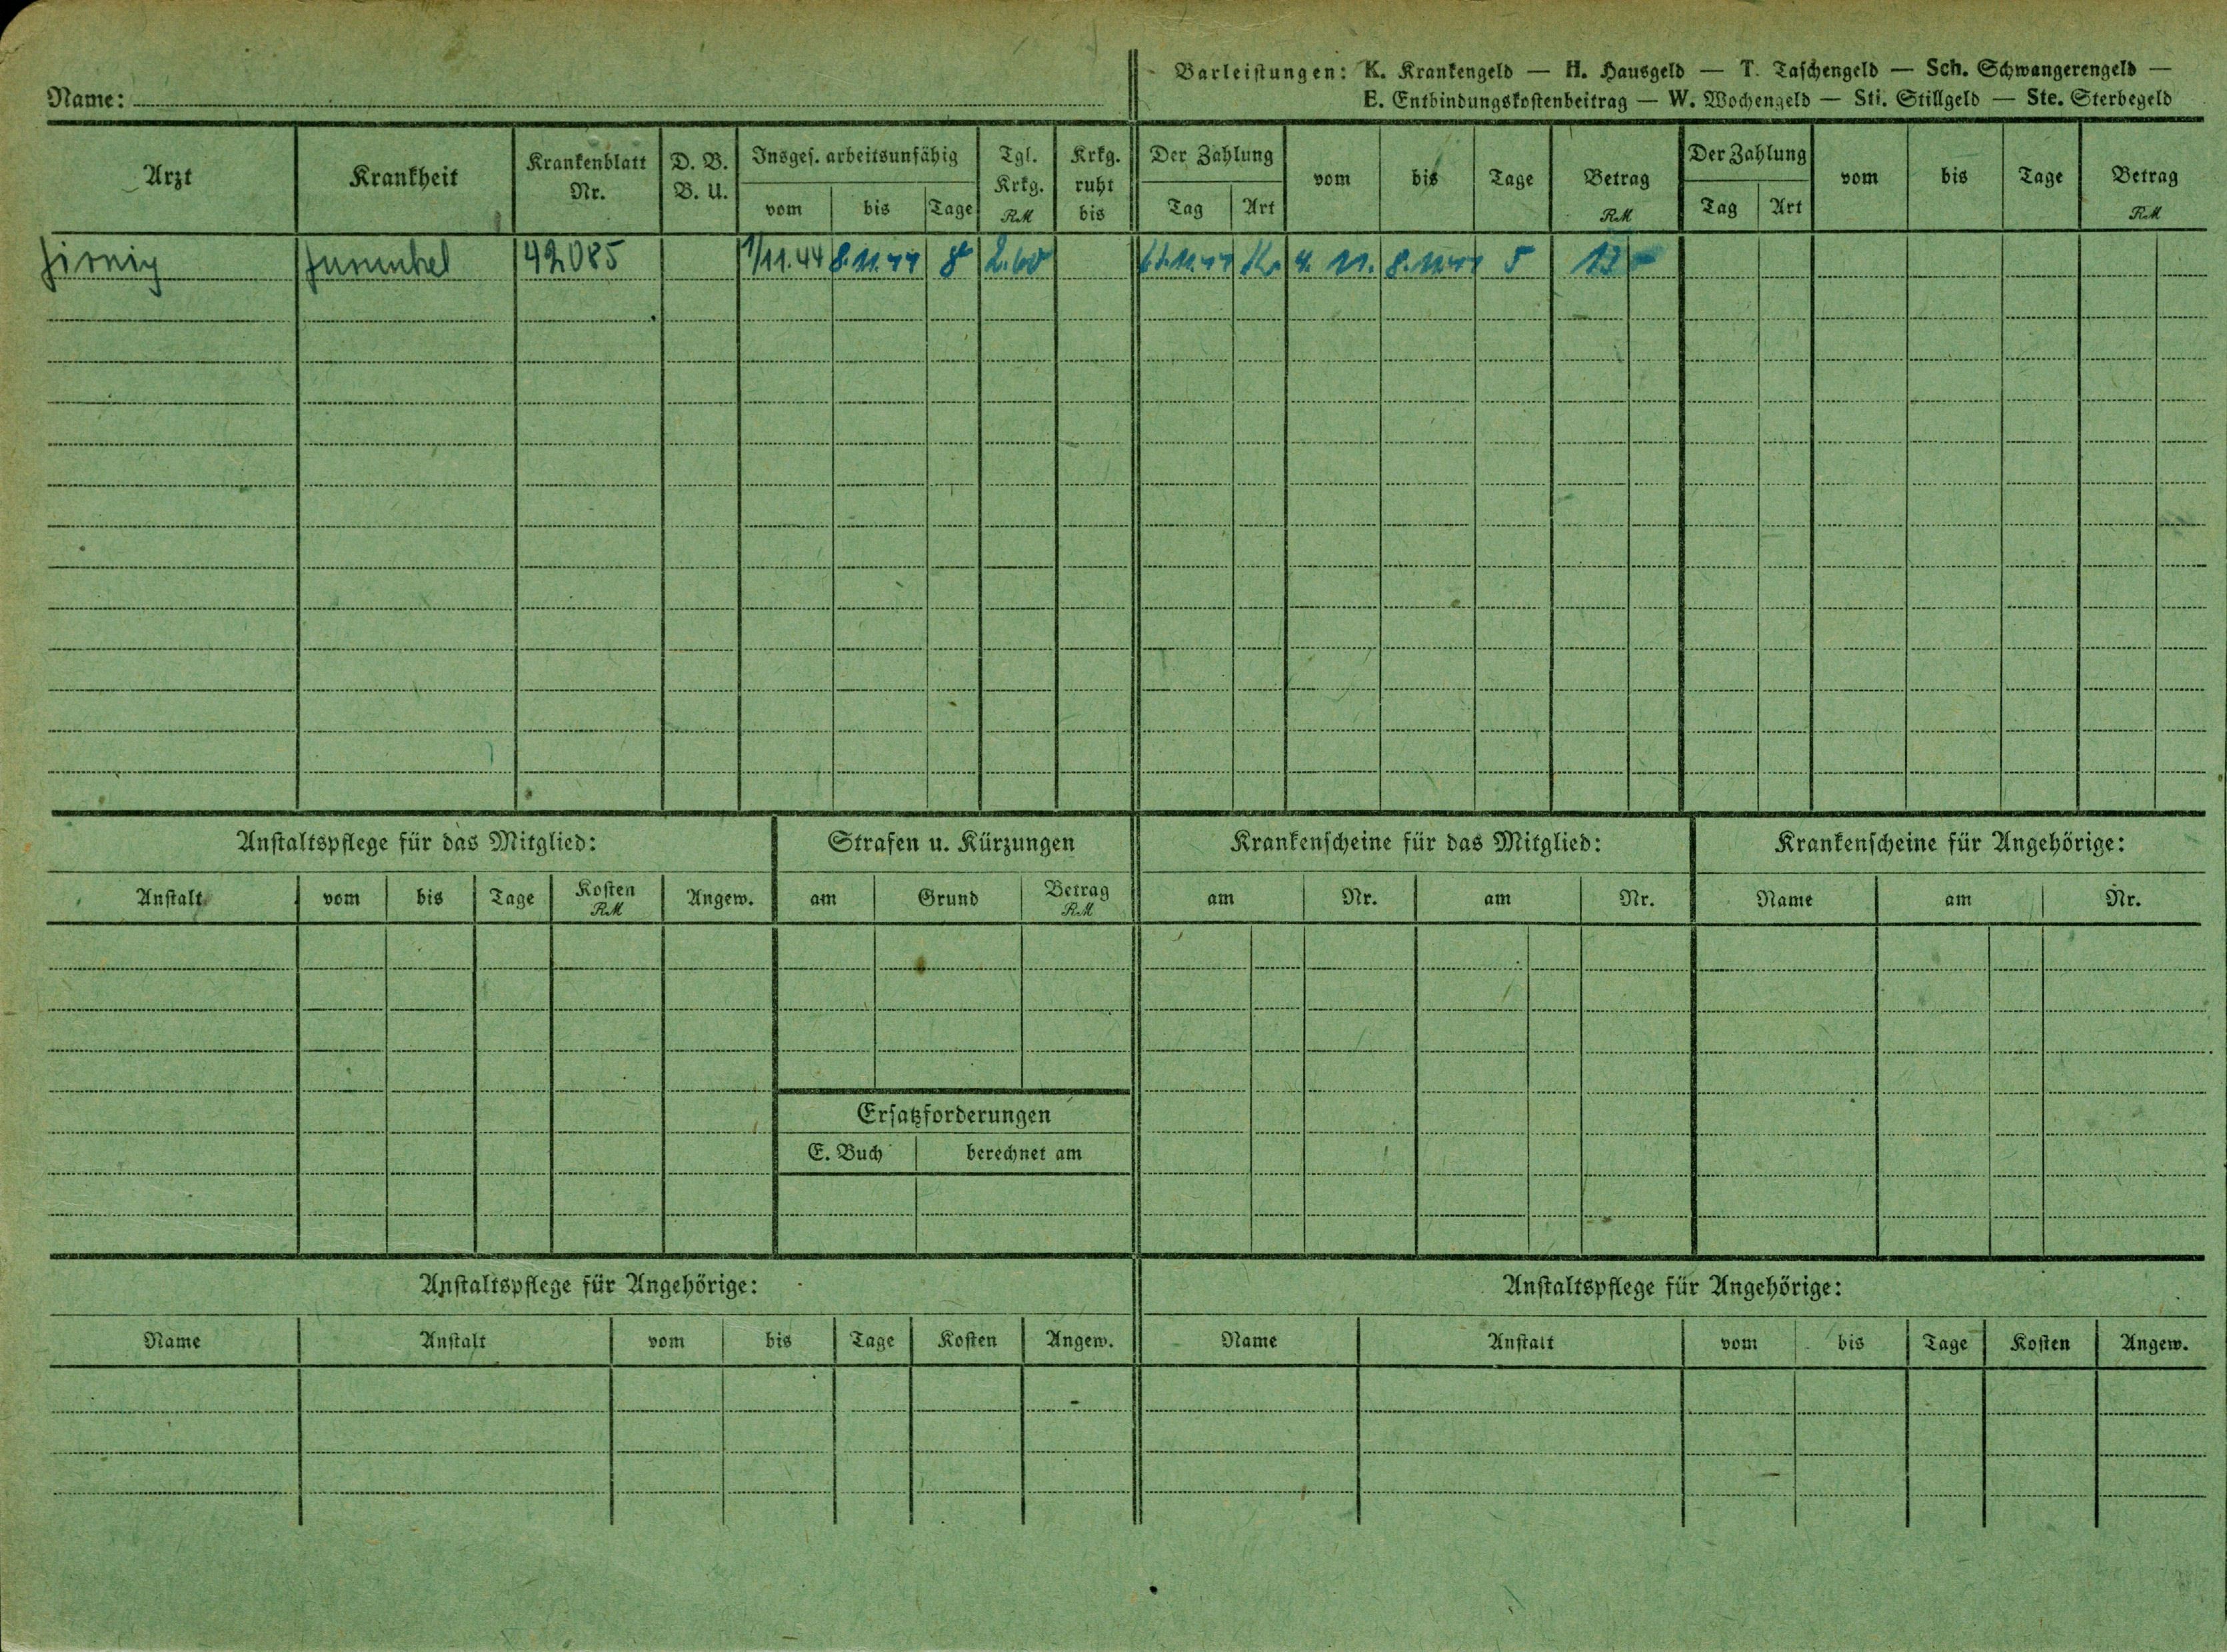 Barleistungen: K. Krankengeld — H. Hausgeld — T. Taschengeld — Sch. Schwangerengeld —
Name: E. Entbindungskostenbeitrag — W. Wochengeld — Sti. Stillgeld — Ste. Sterbegeld
Arzt Krankheit Krankenblatt Nr. D. B. B. U. Insges. arbeitsunfähig vom bis Tage Tgl. Krkg. RM Krkg. ruht bis Der Zahlung Tag Art vom bis Tage Betrag RM Der Zahlung Tag Art vom bis Tage Betrag RM
42085 1/11.44 8.11.44 8 2.60 Kr. 4. 11. 8.11.44 5 13 -
Anstaltspflege für das Mitglied: Strafen u. Kürzungen Krankenscheine für das Mitglied: Krankenscheine für Angehörige:
Anstalt vom bis Tage Kosten RM Angew. am Grund Betrag RM am Nr. am Nr. Name am Nr.
Ersatzforderungen
E. Buch berechnet am
Anstaltspflege für Angehörige: Anstaltspflege für Angehörige:
Name Anstalt vom bis Tage Kosten Angew. Name Anstalt vom bis Tage Kosten Angew.